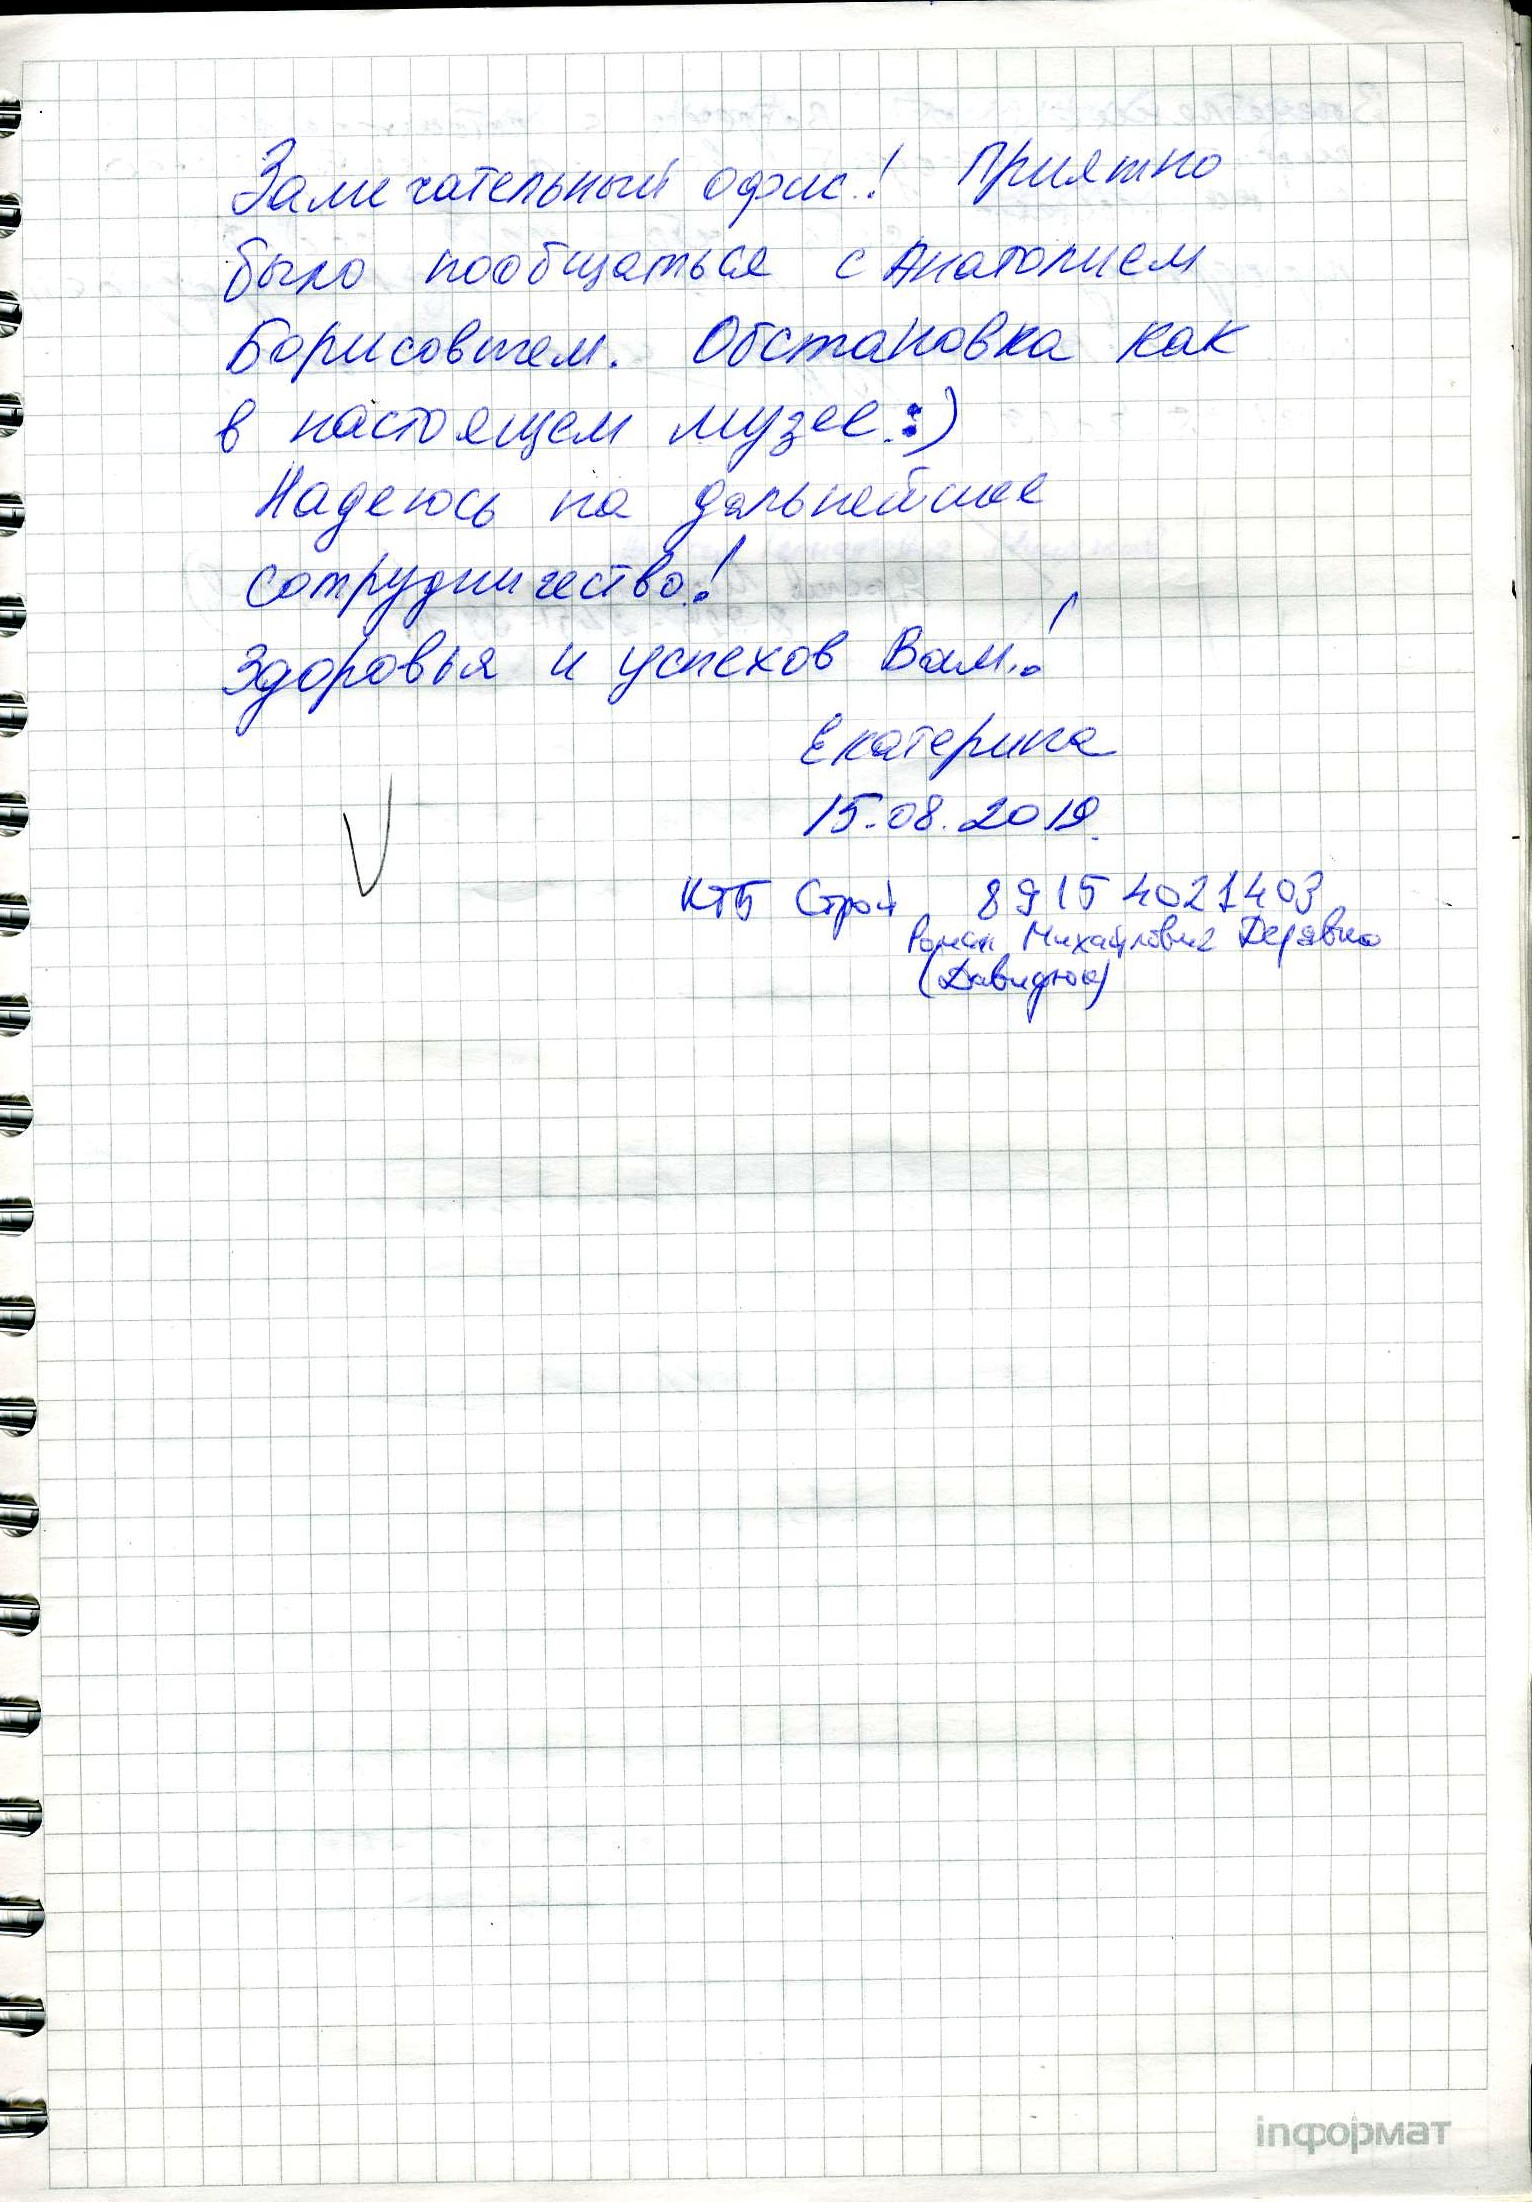 Замечательный офис! Приятно
было пообщаться с Анатолием
Борисовичем. Обстановка как
в настоящем музее :)
Надеюсь на дальнейшее
сотрудничество!
Здоровья и успехов Вам!
Екатерина
15.08.2019.
КТБ Строй 89154021403
Роман Михайлович Деревянко
(Давидюк)
inформат